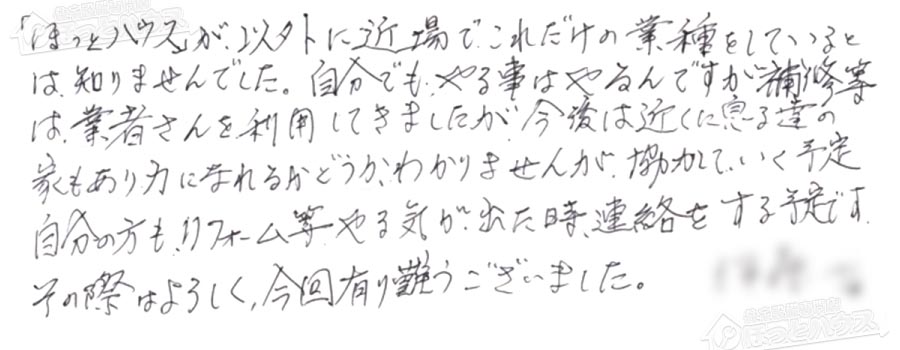 「ほっとハウス」が、以外に近場でこれだけの業種をしていると
は、知りませんでした。自分でも、やる事はやるんですが補修等
は、業者さんを利用してきましたが、今後は近くに息子達の
家もあり力になれるかどうか、わかりませんが、協力して、いく予定
自分の方も、リフォーム等やる気が、出た時、連絡をする予定です。
その際はよろしく、今回有り難うございました。
ほっとハウス
ほっとハウス